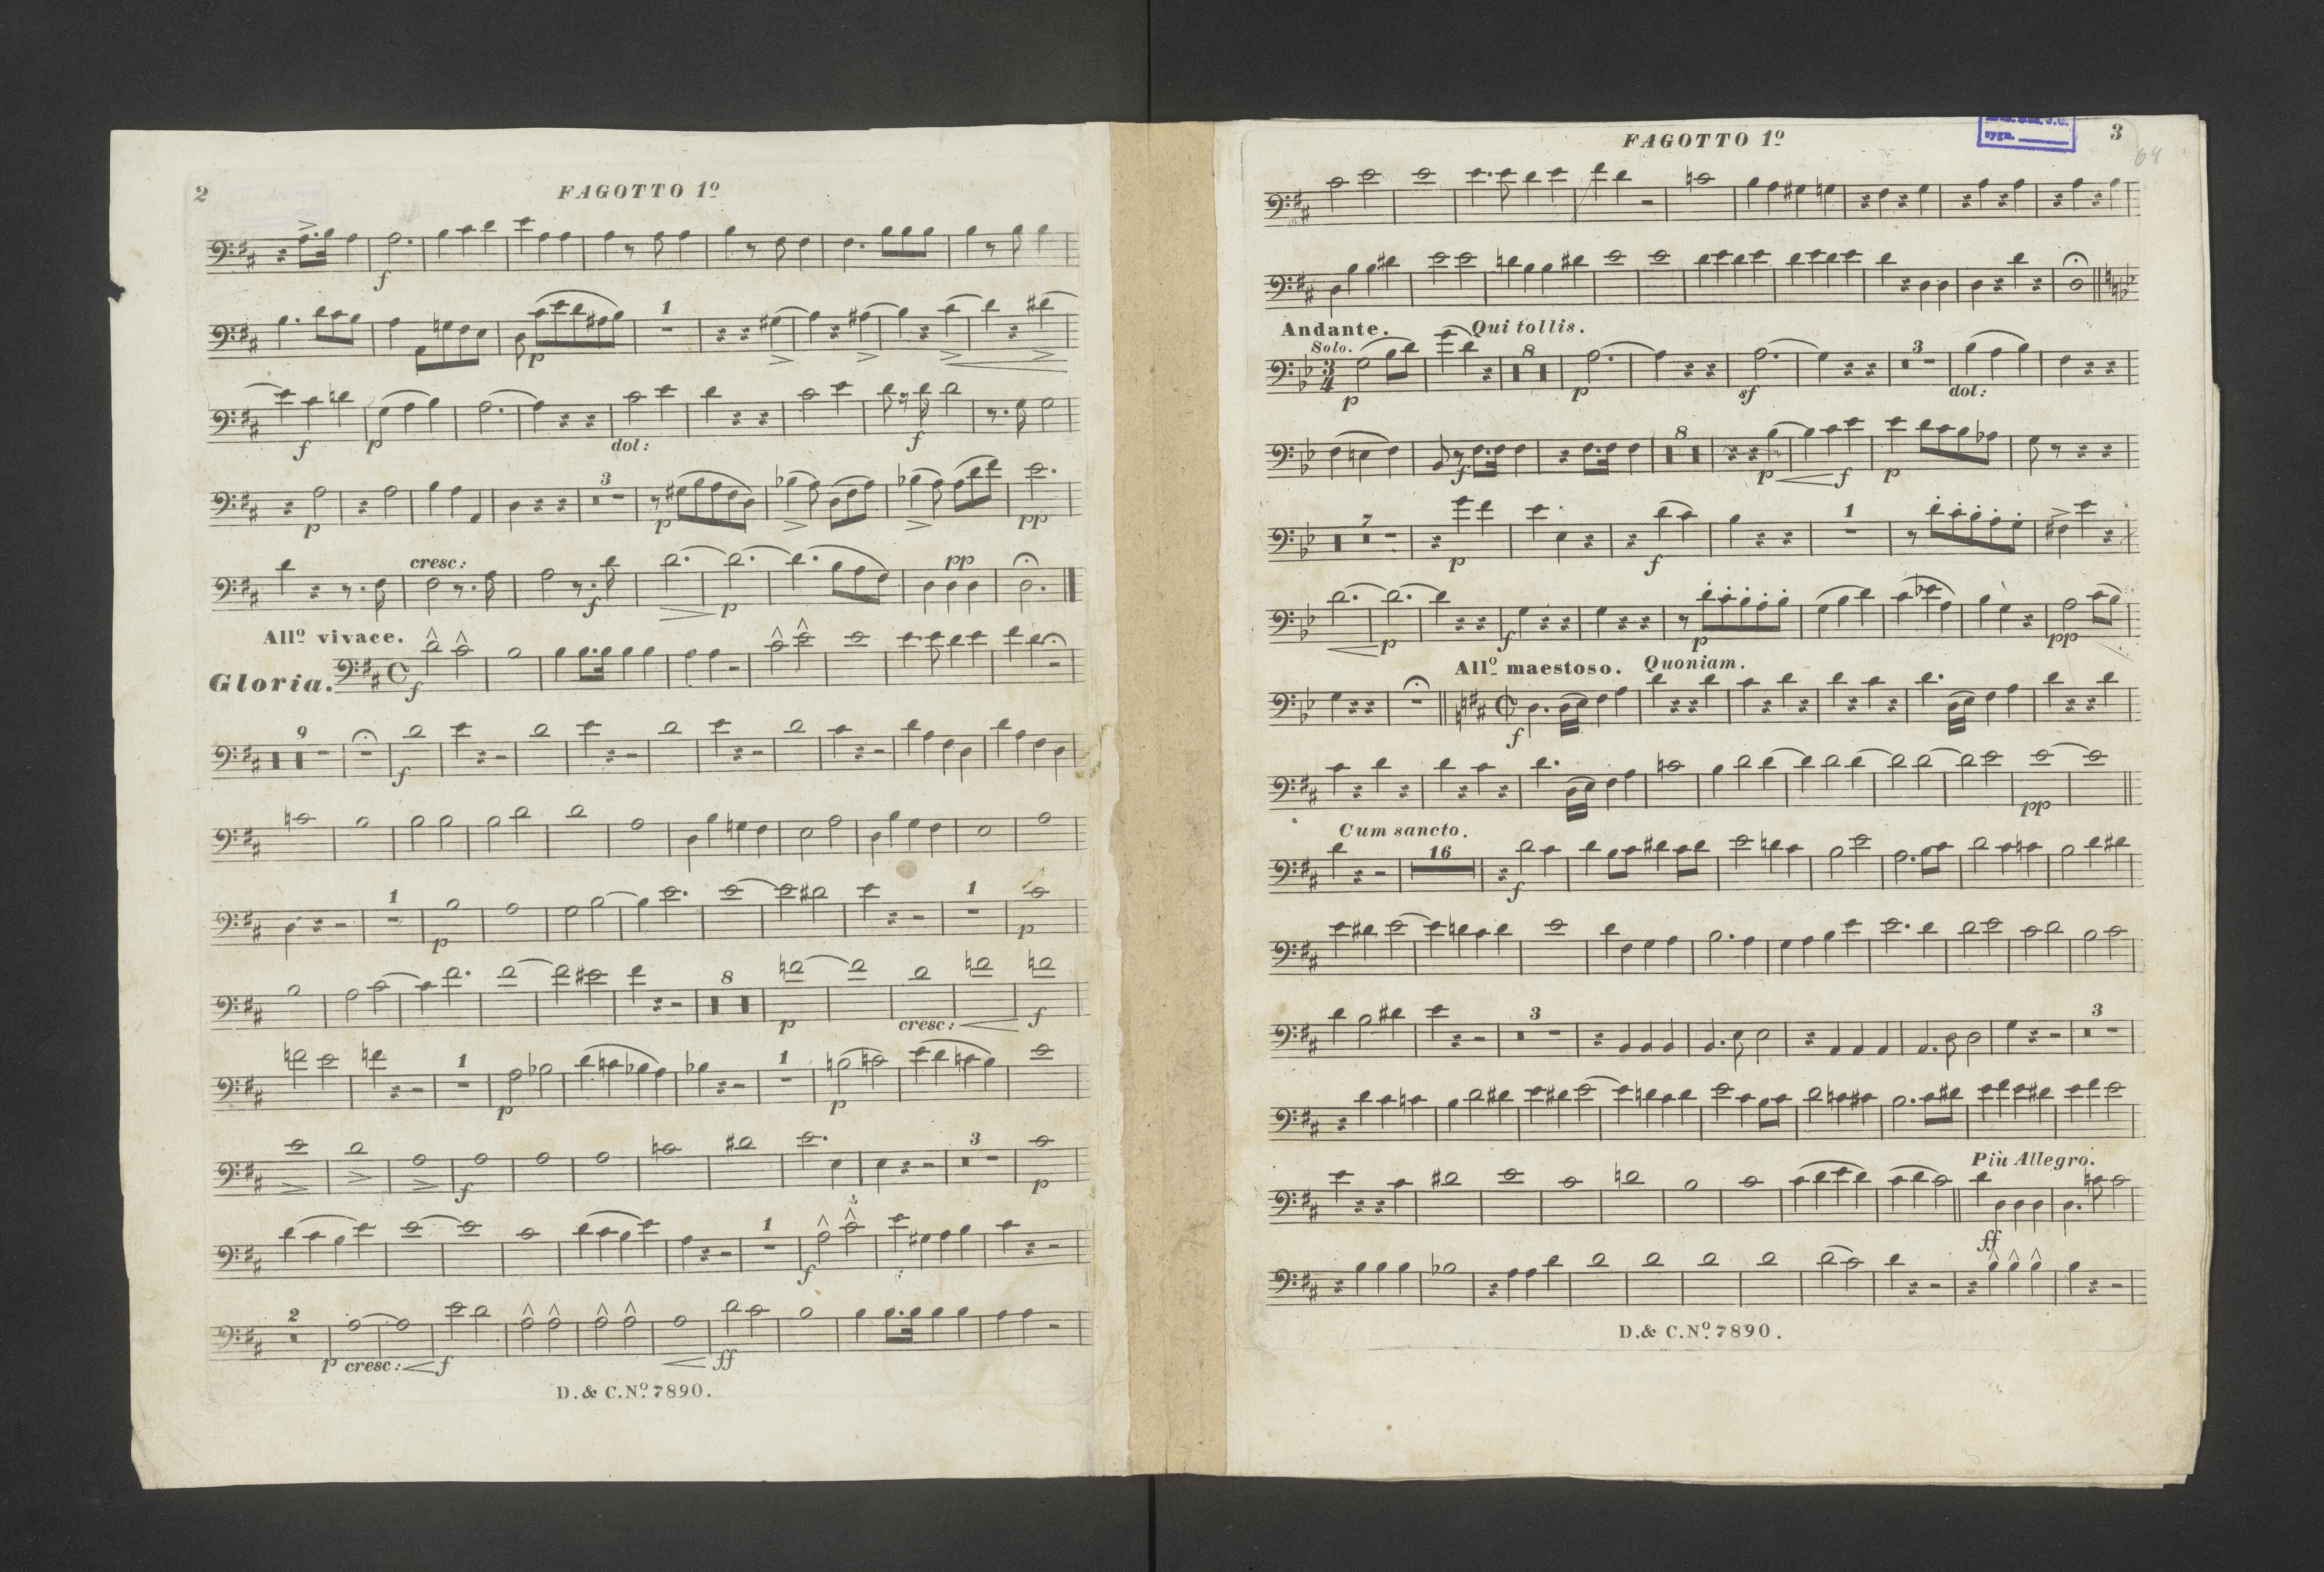 2
FAGOTTO 1º
f
1
p
f
p
dol:
f
p
3
p
pp
cresc:
f
p
pp
Allº vivace.
Gloria.
f
9
f
1
p
1
p
8
p
cresc:
f
1
p
1
p
f
3
p
1
f
2
p cresc:
f
ff
D.& C.Nº.7890.
FAGOTTO 1º
3
64
sygn.
Andante.
Qui tollis.
Solo.
3
4
8
3
p
p
sf
dol:
8
f
p
f
p
7
1
p
f
p
f
p
pp
Allº maestoso.
Quoniam.
f
pp
Cum sancto.
16
f
3
3
Più Allegro.
ff
D.& C.Nº.7890.